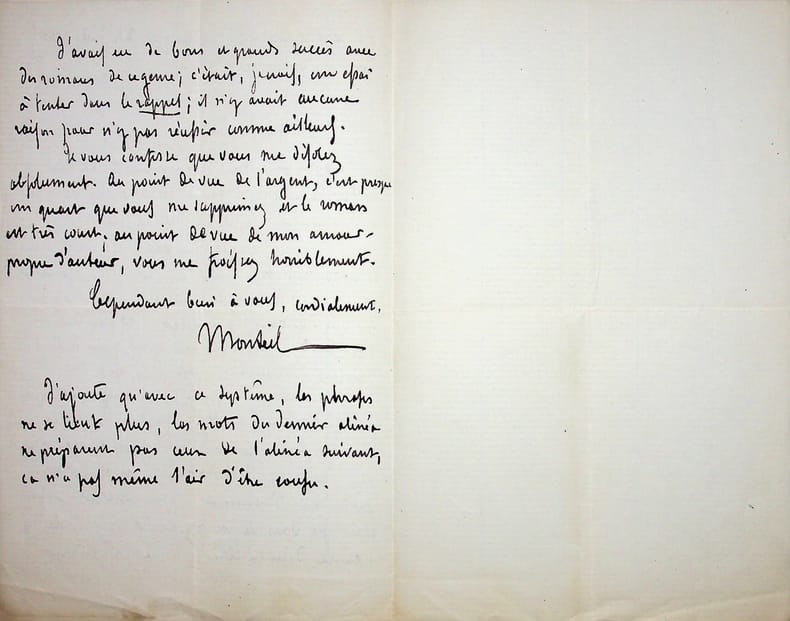 J'avais eu de bons et grands succès avec
des romans de ce genre; c'était, je crois, un essai
à tenter dans le rappel; il n'y avait aucune
raison pour n'y pas réussir comme ailleurs.
Je vous confesse que vous me désolez
absolument. Au point de vue de l'argent, c'est presque
un quart que vous me supprimez et le roman
est très court; au point de vue de mon amour-
propre d'auteur, vous me froissez horriblement.
Cependant bien à vous, cordialement,
Monteil
J'ajoute qu'avec ce système, les phrases
ne se lient plus, les mots du dernier alinéa
ne préparent pas ceux de l'alinéa suivant,
ça n'a pas même l'air d'être cousu.